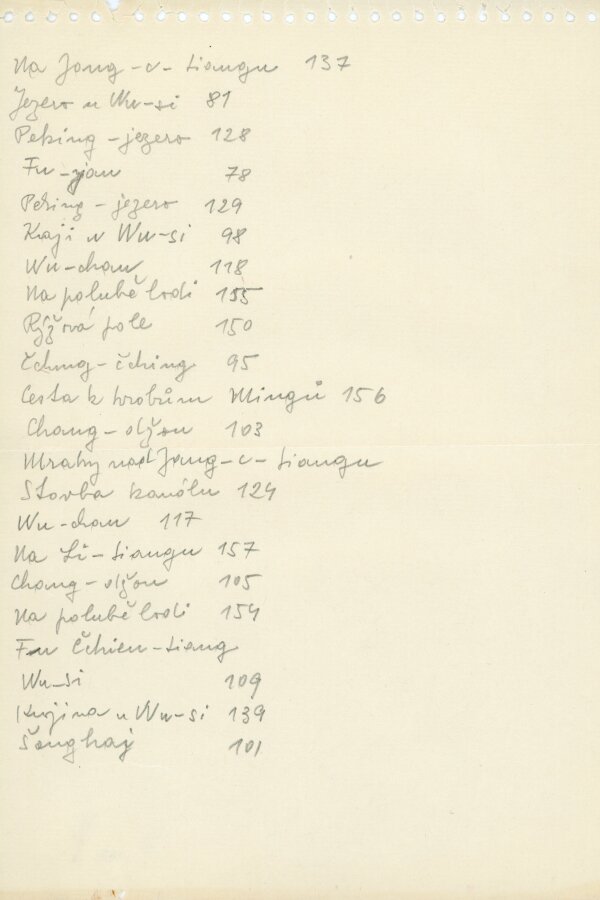 Na Jang-c-ťiangu 137
Jezero u Wu-si 81
Peking - jezero 128
Fu-
78
Peking - jezero 129
Kraji u Wu-si 98
Wu-chan 118
Na palubě lodi 155
Rýžová pole 150
Čchung-čching 95
Cesta k hrobům Mingů 156
Chang-džou 103
Mraky nad Jang-c-ťiangu
Stavba kanálu 124
Wu-chan 117
Na Li-ťiangu 157
Chang-džou 105
Na palubě lodi 154
Fu Čchien-ťiang
Wu-si 109
Krajina u Wu-si 139
Šanghaj 101